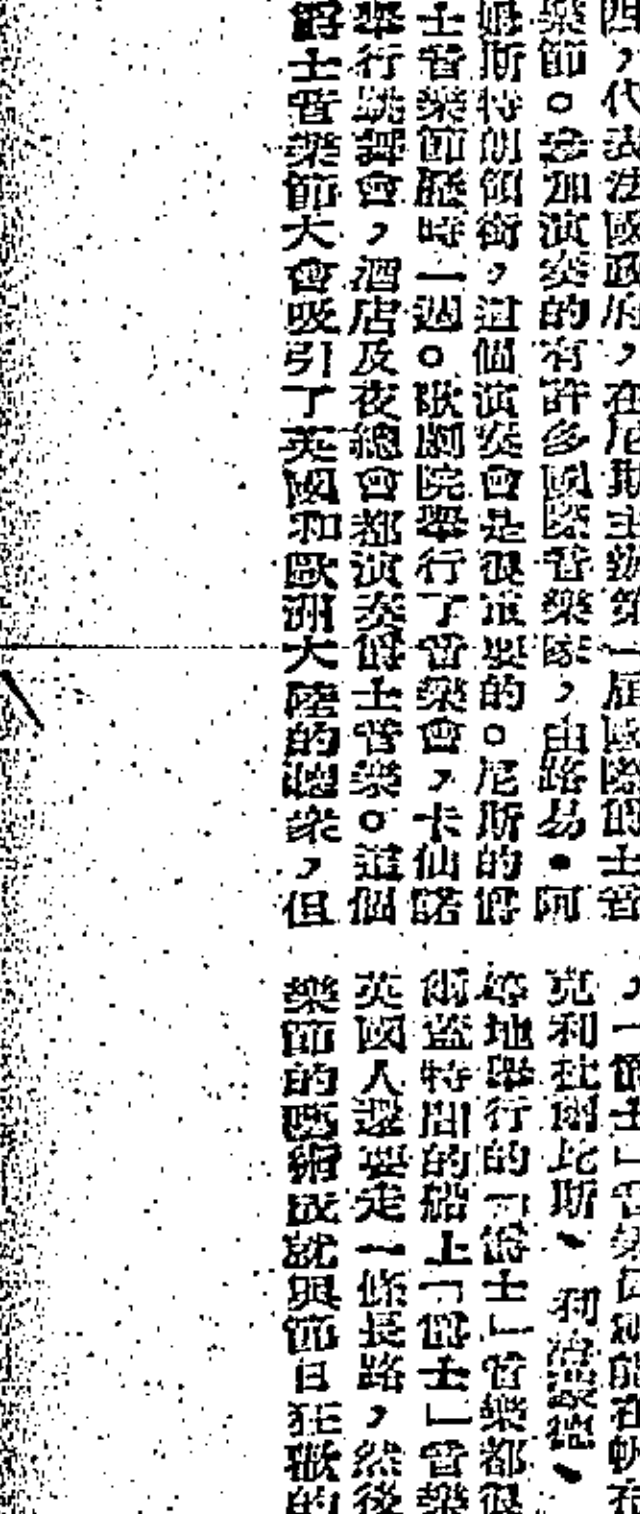 四，代表法國政府，在尼斯主辦第一屆國際爵士音
樂節。參加演奏的有許多國際音樂家，由路易•阿
姆斯特朗領銜，這個演奏會是很重要的。尼斯的爵
士音樂節歷時一週。歌劇院舉行了音樂會，卡仙諾
舉行跳舞會，酒店及夜總會都演奏爵士音樂。這個
爵士音樂節大會吸引了英國和歐洲大陸的聽衆，但
，「爵士」音樂
克利杜爾比斯、利
等地舉行的「爵士」音樂都很
爾蓋特間的船上「爵士」音樂
英國人還要走一條長路，然後
樂節的藝術成就與節目狂歡的